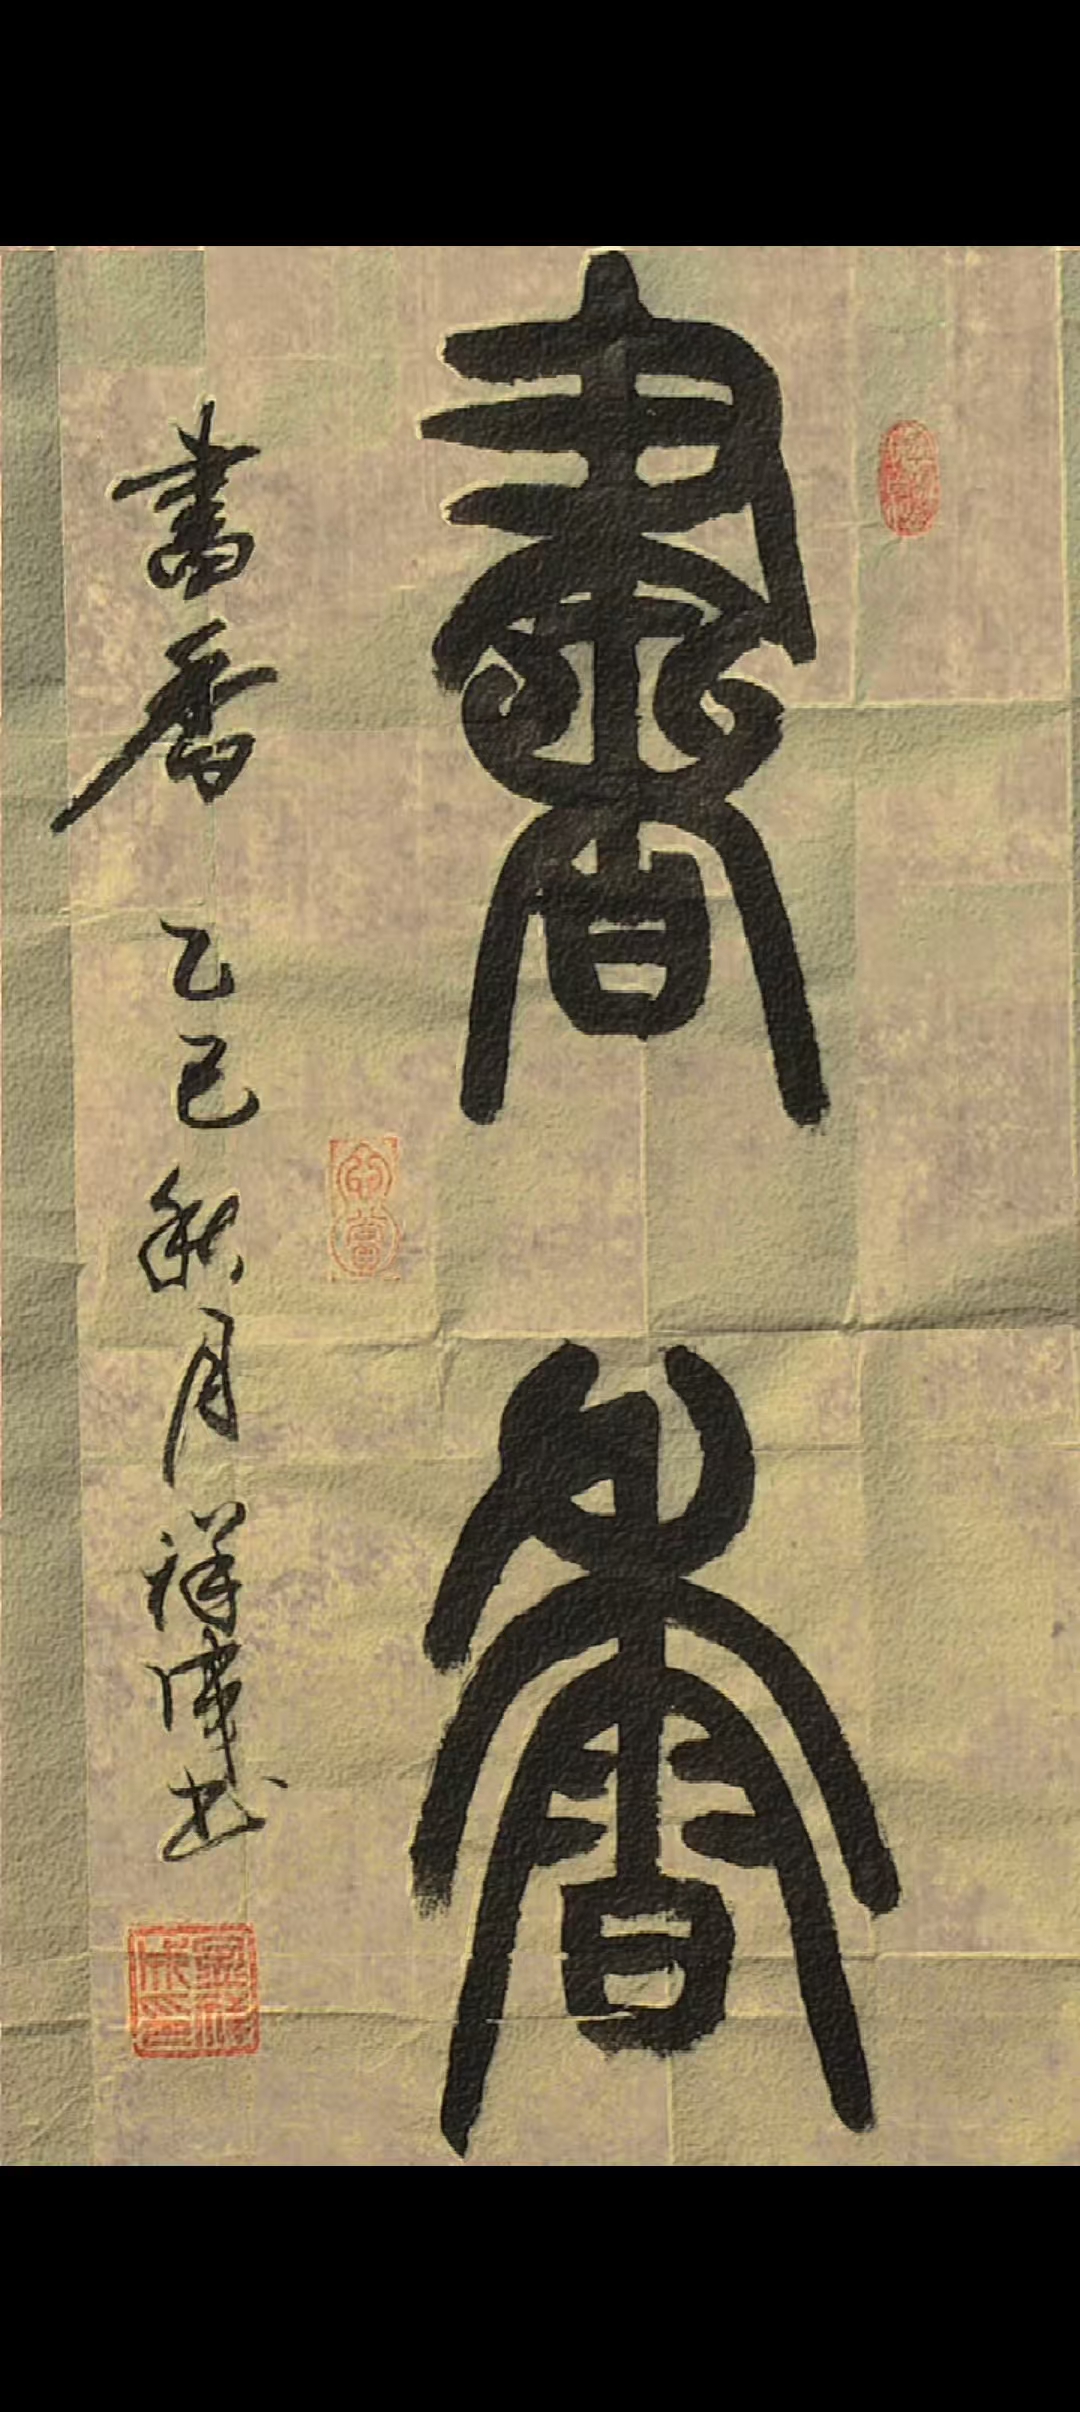 書香
書香 乙巳秋月祥偉书